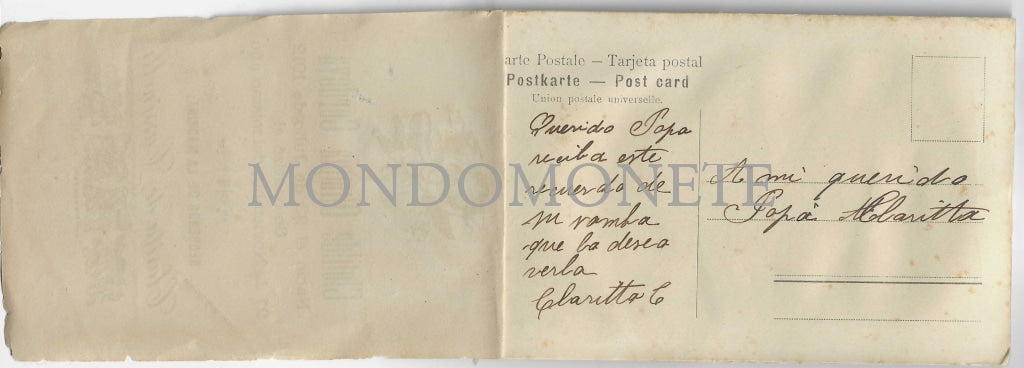 arte Postale — Tarjeta postal
Postkarte — Post card
Union postale universelle.
Querido Papa
reciba este
recuerdo de
que la desea
verla
Claritta C
A mi querido
Papà Claritta
MONDOMONETE